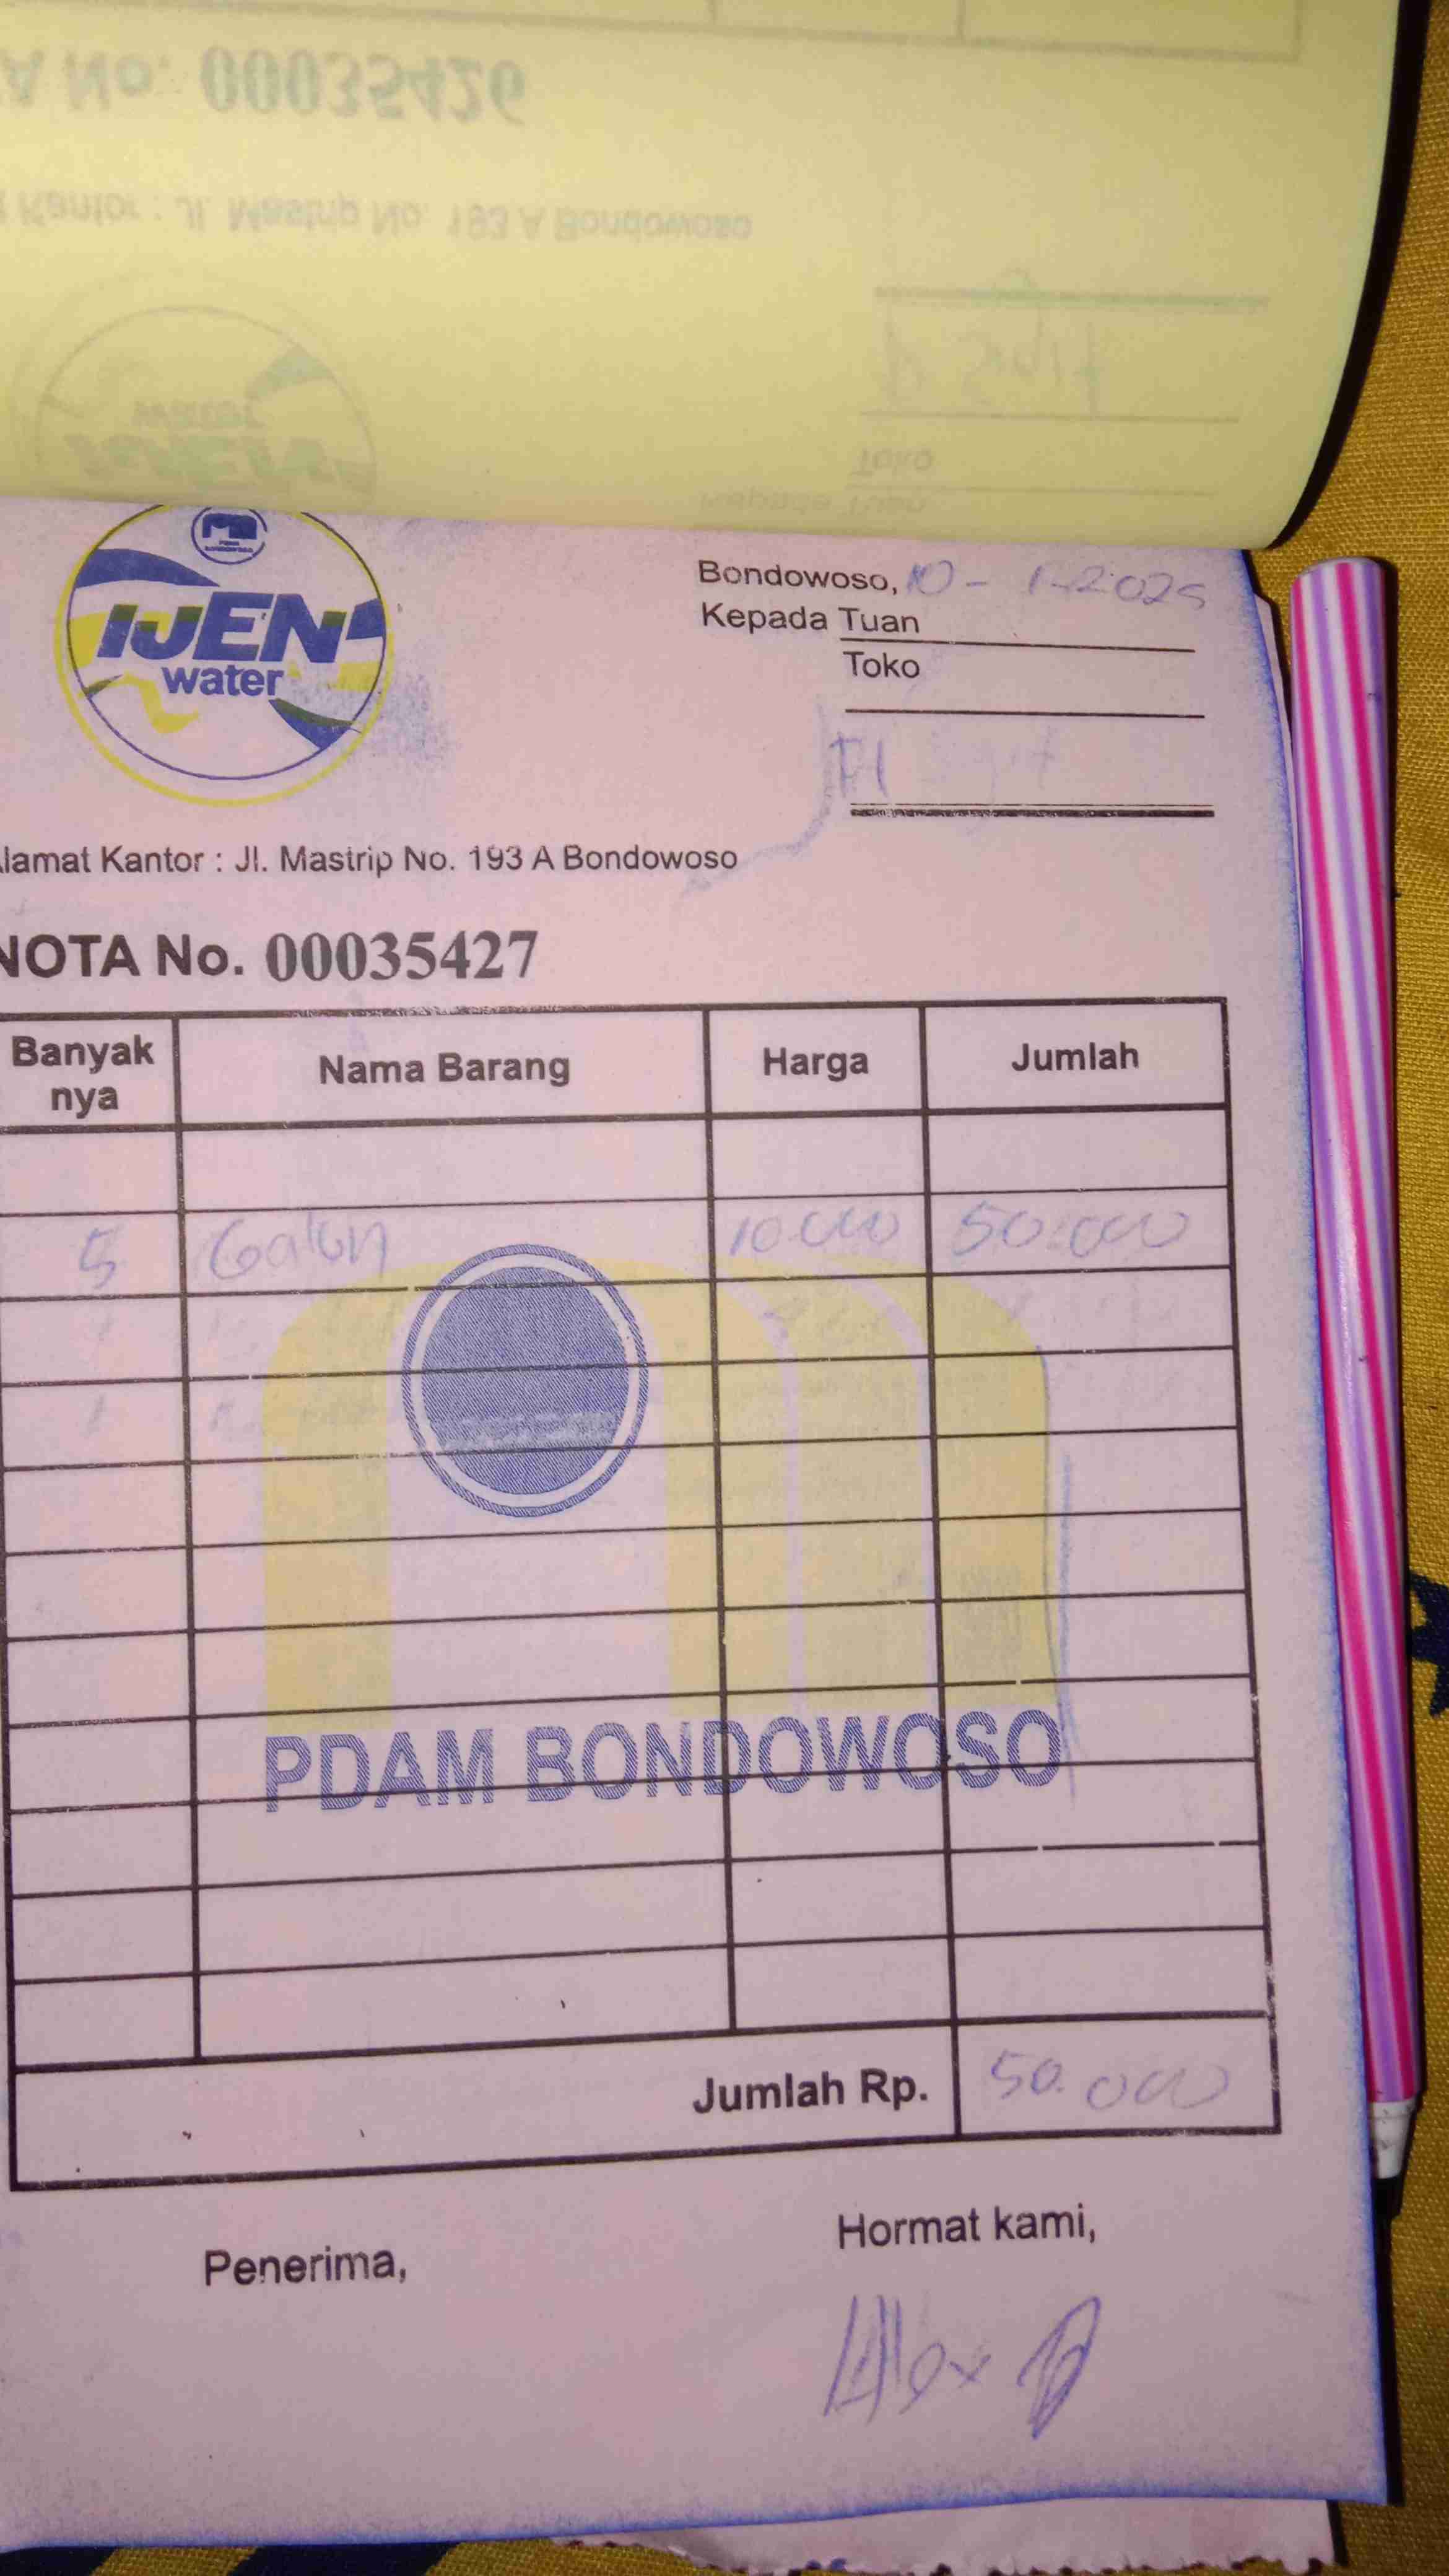 A No. 00035426
Kantor : Jl. Mastrip No. 193 A Bondowoso
water
IJEN
Toko
Kepada Tuan
PDAM
BONDOWOSO
IJEN
water
Bondowoso, 10 - 1-2025
Kepada Tuan
Toko
lamat Kantor : Jl. Mastrip No. 193 A Bondowoso
NOTA No. 00035427
Banyak nya Nama Barang Harga Jumlah
5 Galon 10.000 50.000
PDAM BONDOWOSO
Jumlah Rp. 50.000
Penerima,
Hormat kami,